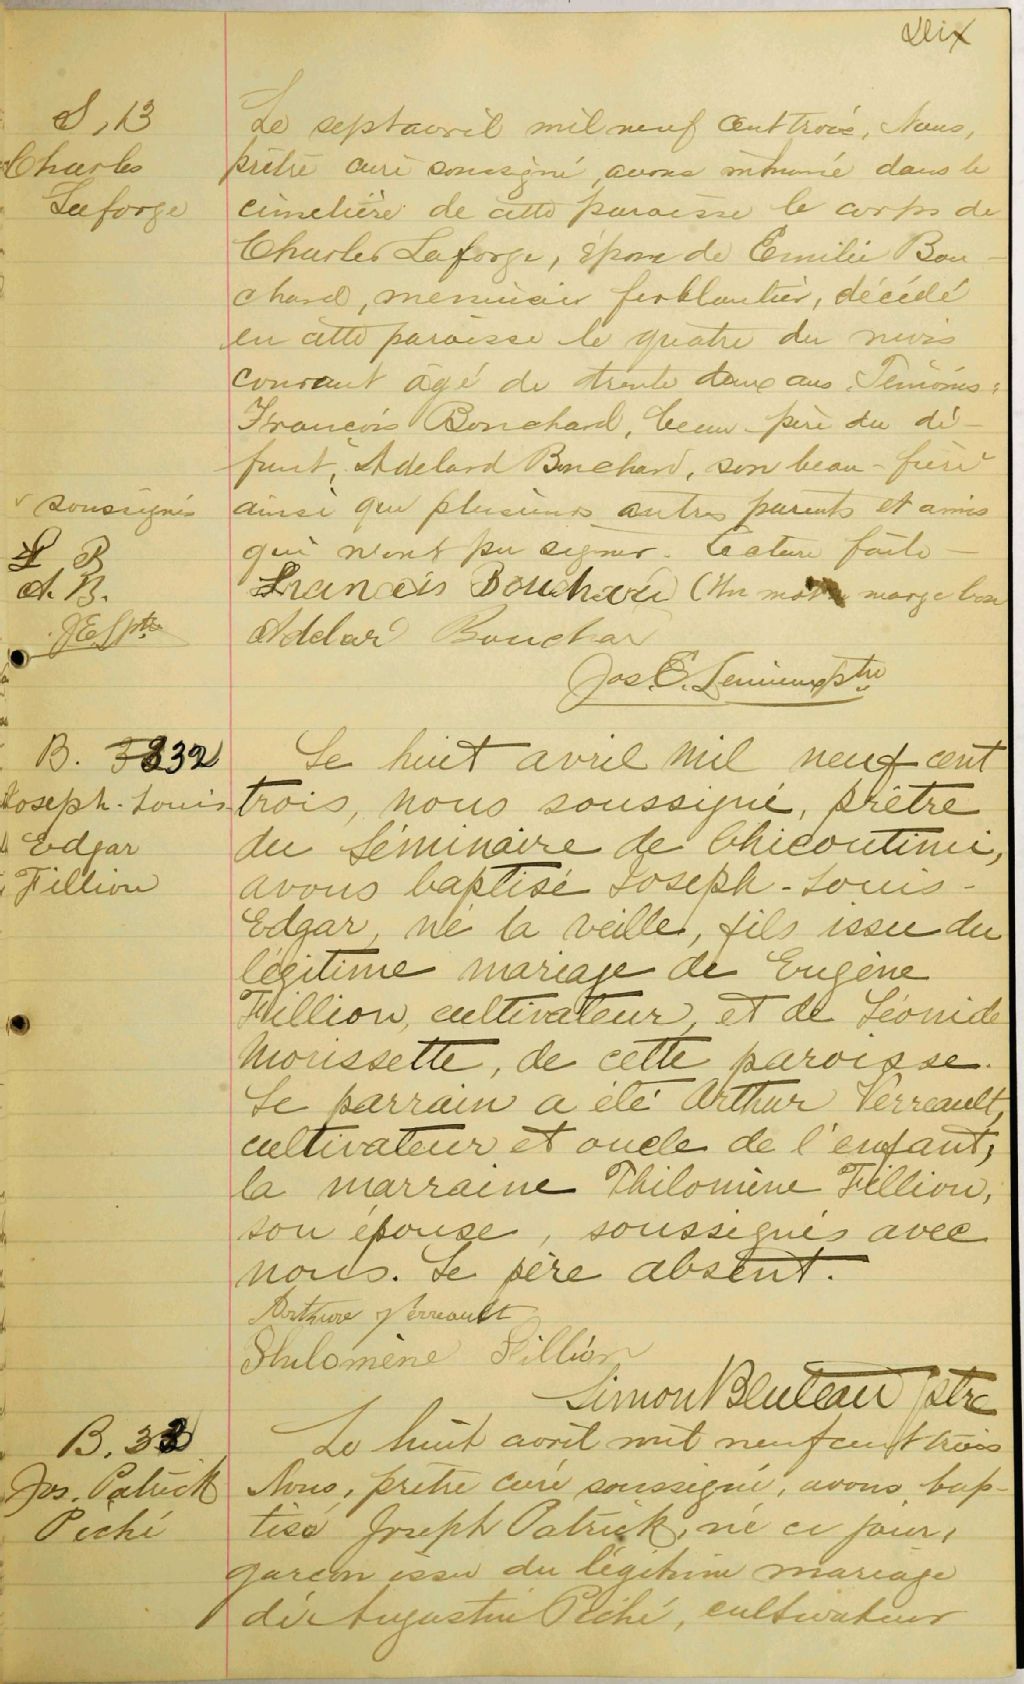 Dix
S. 13
Charles
Laforge
Le sept avril mil neuf cent trois, Nous,
prêtre curé soussigné, avons inhumé dans le
cimetière de cette paroisse le corps de
Charles Laforge, époux de Emilie Bou-
chard, menuisier ferblantier, décédé
en cette paroisse le quatre du mois
courant âgé de trente deux ans. Témoins:
François Bouchard, beau-père du dé-
funt, Adelard Bouchard, son beau-frère
v soussignés
ainsi que plusieurs autres parents et amis
qui n'ont pu signer. Lecture faite-
F B
A. B.
J.E.L ptre
Francois Bouchard (Un mot en marge bon
Adelar Bouchar
Jos. E. Lemieux ptre
B. 32
Joseph-Louis
Edgar
Fillion
Le huit avril mil neuf cent
trois, nous soussigné, prêtre
du Séminaire de Chicoutimi,
avons baptisé Joseph-Louis-
Edgar, né la veille, fils issu du
légitime mariage de Eugène
Fillion, cultivateur, et de Léonide
Morissette, de cette paroisse.
Le parrain a été Arthur Verreault,
cultivateur et oncle de l'enfant;
la marraine Philomène Fillion,
son épouse, soussignés avec
nous. Le père absent.
Arthure Verreault
Philomène Fillion
Simon Bluteau ptre
B. 33
Jos. Patrick
Piché
Le huit avril mil neuf cent trois
Nous, prêtre curé soussigné, avons bap-
tisé Joseph Patrick, né ce jour,
garcon issu du légitime mariage
de Augustin Piché, cultivateur